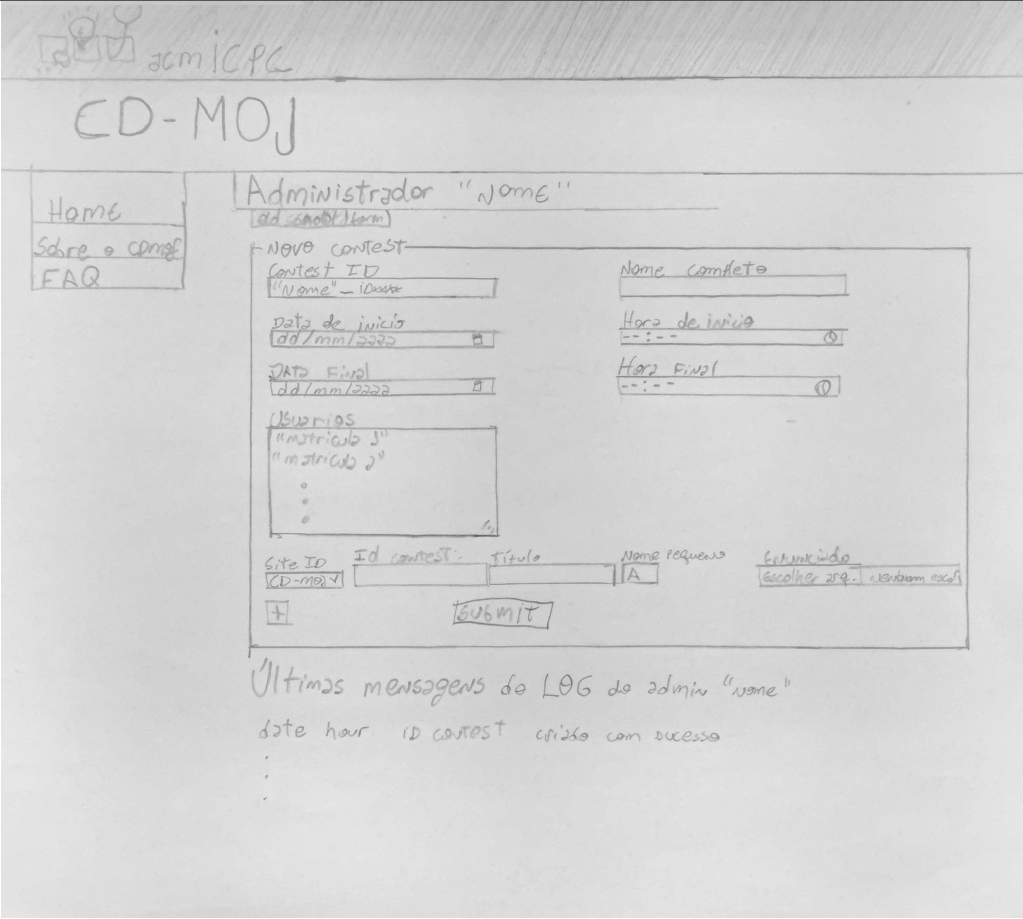 acmICPC
CD-MOJ
Home
Sobre o CDMOJ
FAQ
Administrador "NOME"
add contest form
NOVO CONTEST
Contest ID
Nome completo
"Nome"_ID
Data de inicio
Hora de inicio
dd/mm/aaaa
--:--
DATA Final
Hora Final
dd/mm/aaaa
--:--
Usuarios
"matricula 1"
"matricula 2"
Site ID
Id contest:
Título
Nome pequeno
Enunciado
CD-MOJ
A
Escolher arq.
Nenhum escol
+
SUBMIT
Últimas mensagens do LOG do admin "nome"
date hour ID contest criado com sucesso